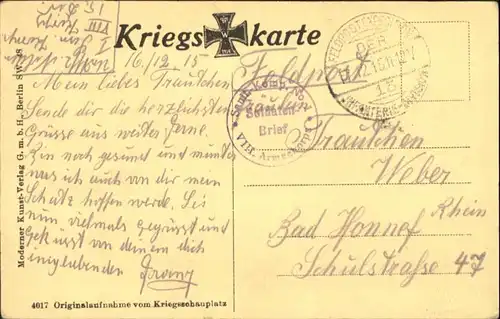 Kriegskarte
16/12 15
Mein liebes Trautchen
Sende dir die herzlichsten
Grüsse aus weiter Ferne.
Bin noch gesund und munter
was ich auch an dir mein
Schatz hoffen werde. Sei
nun vielmals gegrüsst und
geküsst von deinem dich
innigliebenden
Franz
Feldpost
Fräulein
Trautchen
Weber
Bad Honnef
Rhein
Schulstrasse 47
Soldaten-
Brief
VIII. Armeekorps
DER
Moderner Kunst-Verlag G. m. b. H., Berlin SW. 68
4017 Originalaufnahme vom Kriegsschauplatz